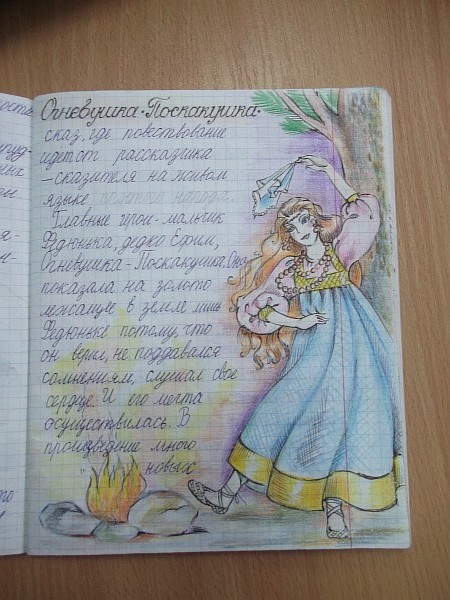 Огневушка-Поскакушка.
сказ, где повествование
идет от рассказчика
-сказителя на живом
языке,
Главные герои-мальчик
Федюнька, дедко Ефим,
Огневушка-Поскакушка. Она
показала на золото
лежащие в земле лишь
Федюньке потому, что
он верил, не поддавался
сомнениям, слушал свое
сердце. И его мечта
осуществилась. В
произведение много
новых